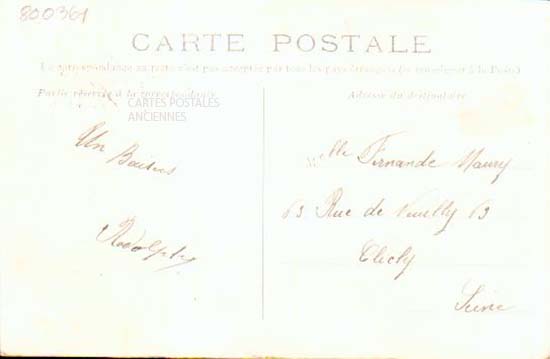 800361
CARTE POSTALE
La correspondance au recto n'est pas acceptée par tous les pays étrangers (se renseigner à la Poste)
Partie réservée à la correspondance
Adresse du destinataire
CARTES POSTALES
ANCIENNES
Un
Baisers
Rodolphe
Melle Fernande Maury
63 Rue de Neuilly 63
Clichy
Seine